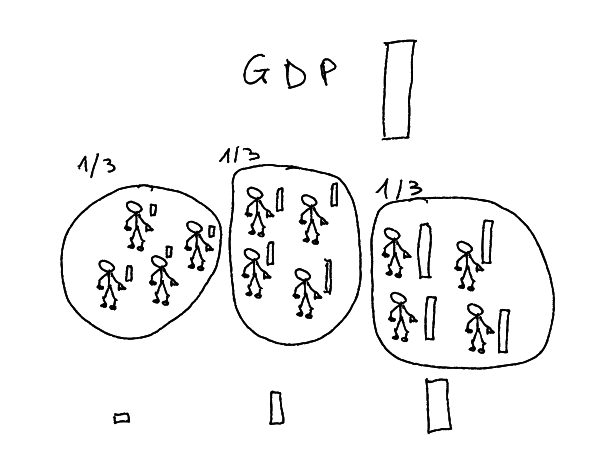 GDP
1/3
1/3
1/3